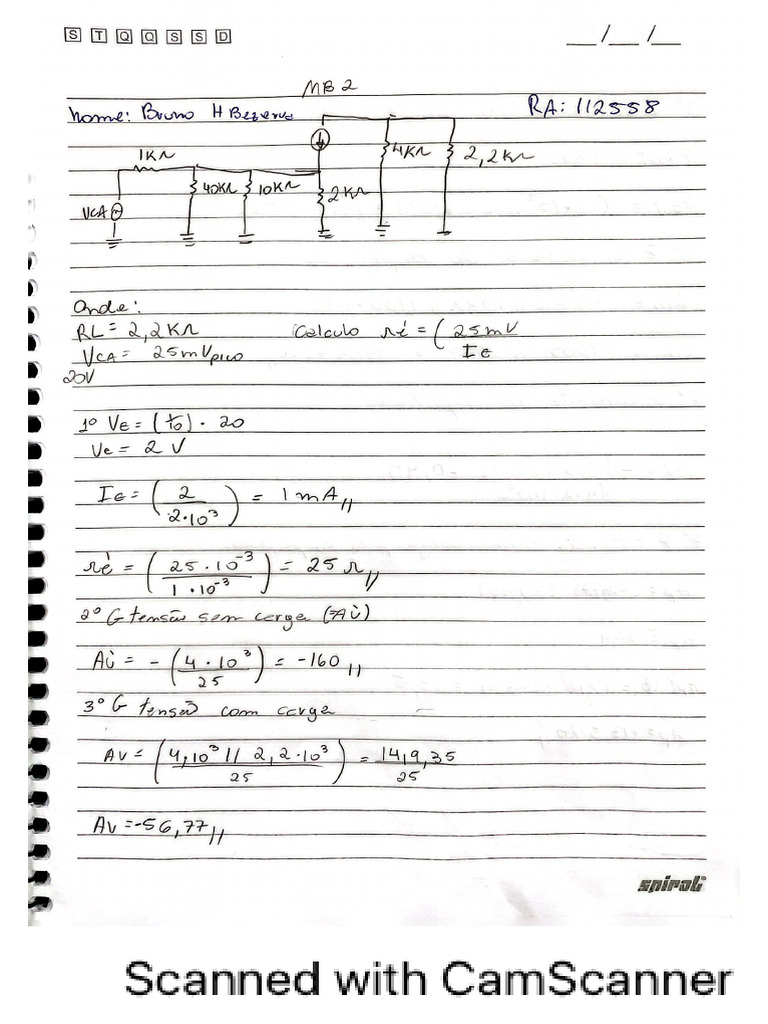 S T Q Q S S D
__/__/__
MB2
Nome: Bruno H Bezerra
RA: 112558
1KΩ
40KΩ
10KΩ
2KΩ
4KΩ
2,2KΩ
VCA
Onde:
RL = 2,2KΩ
Calculo ré = (25mV
IE
VCA = 25mVpico
20V
1º VE = (1/10) . 20
Ve = 2 V
IE = (2 / 2.10³) = 1mA,,
ré = (25.10⁻³ / 1.10⁻³) = 25 Ω,,
2º G tensão sem carga (Aù)
Aù = -(4.10³ / 25) = -160,,
3º G tensão com carga
AV = (4,10³ // 2,2.10³ / 25) = 14,9,35 / 25
AV = -56,77,,
spiral
Scanned with CamScanner